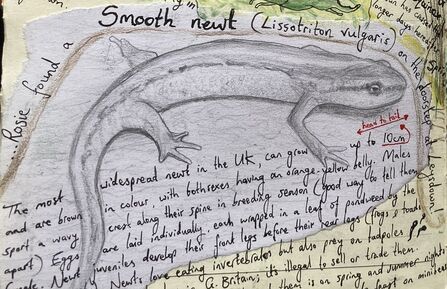 Smooth newt (Lissotriton vulgaris) on the doorstep of
... Rosie found a
longer days
head to tail
The most widespread newt in the UK, can grow up to 10cm
and are brown in colour, with both sexes having an orange-yellow belly. Males
sport a wavy crest along their spine in breeding season (good way to tell them
apart) Eggs are laid individually, each wrapped in a leaf of pondweed by the
Newt juveniles develop their front legs before their rear legs (frogs & toads
Newts love eating invertebrates but also prey on tadpoles
G. Britain; it's illegal to sell or trade them.
on spring and summer nights